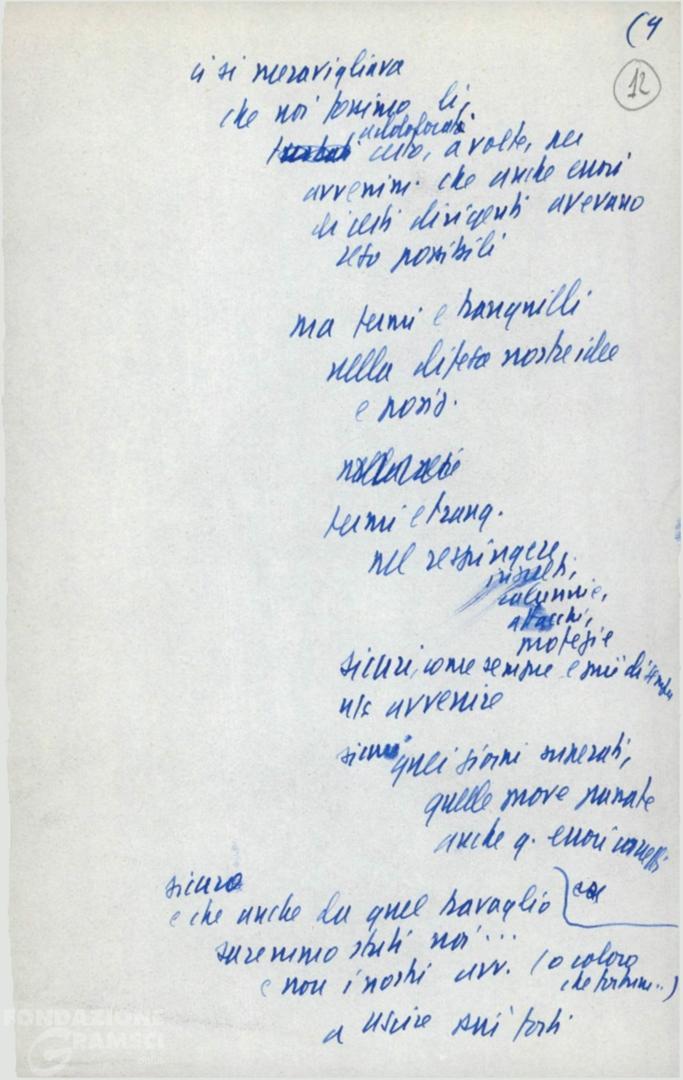 (4
12
ci si meravigliava
che noi fossimo lì,
addolorati
certo, a volte, per
avvenim. che anche errori
di certi dirigenti avevano
reso possibili
ma fermi e tranquilli
nella difesa nostre idee
e posiz.
fermi e tranq.
nel respingere
insulti,
calunnie,
attacchi,
profezie
sicuri, come sempre e più di sempre
n/s avvenire
sicuri quei giorni superati,
quelle prove passate
anche q. errori corretti
sicuro
e che anche da quel travaglio
saremmo stati noi...
e non i nostri avv. (o coloro
che ...)
a uscire più forti
FONDAZIONE
GRAMSCI